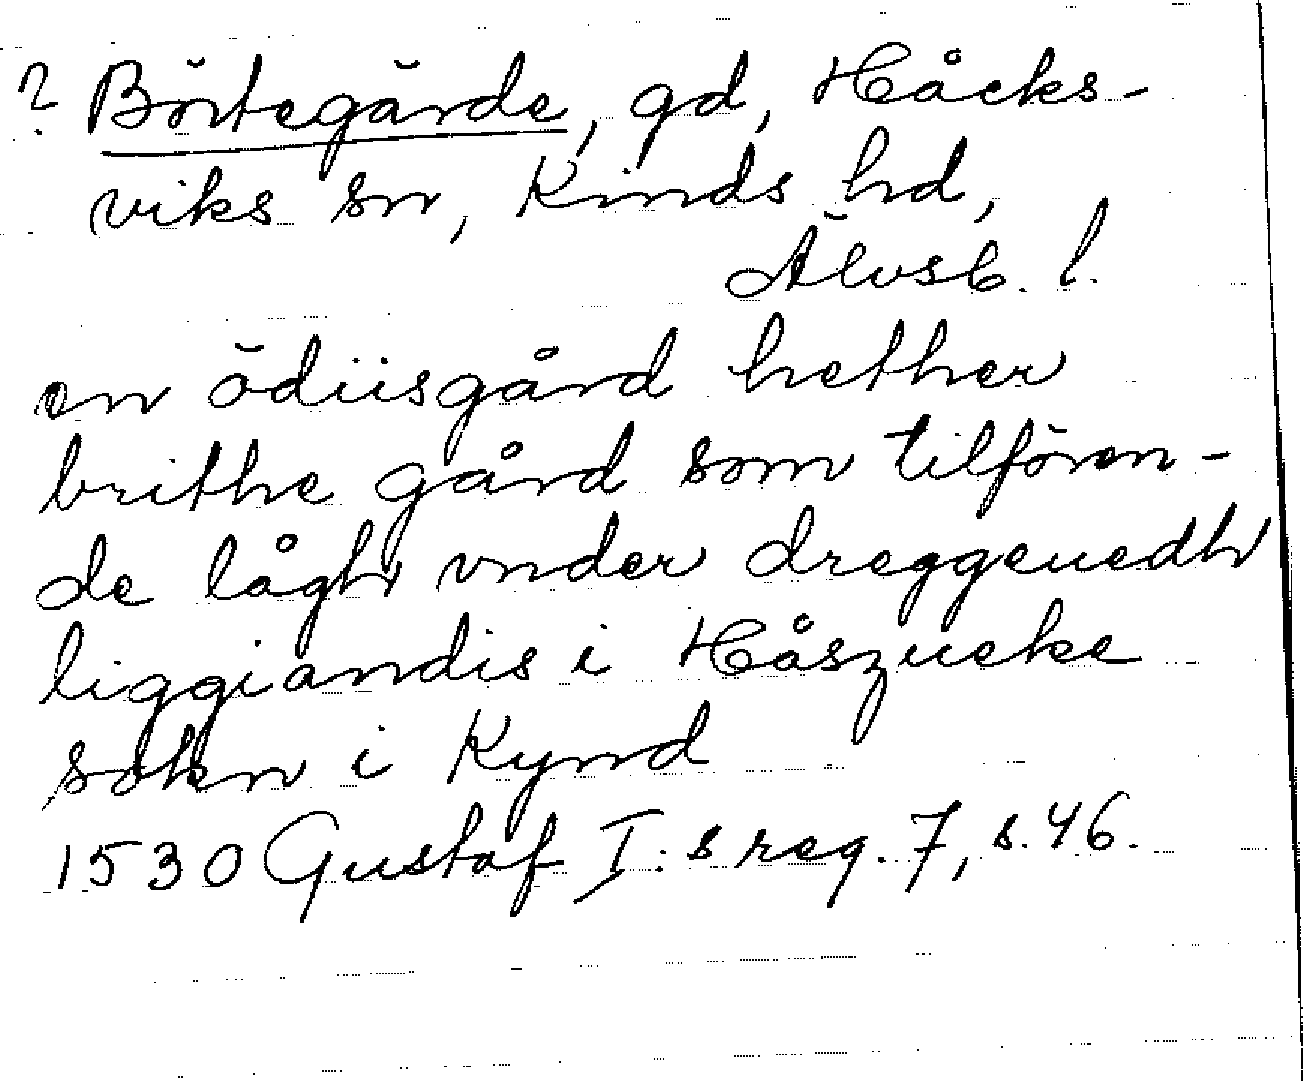 ? Börtegärde, gd, Håcks-
viks sn, Kinds hd,
Älvsb. l.
en ödiisgård hether
brithe gård som tilfören-
de lågh vnder dreggeuedh
liggiandis i Håszueke
sokn i Kynd
1530 Gustaf I:s reg. 7, s. 46.